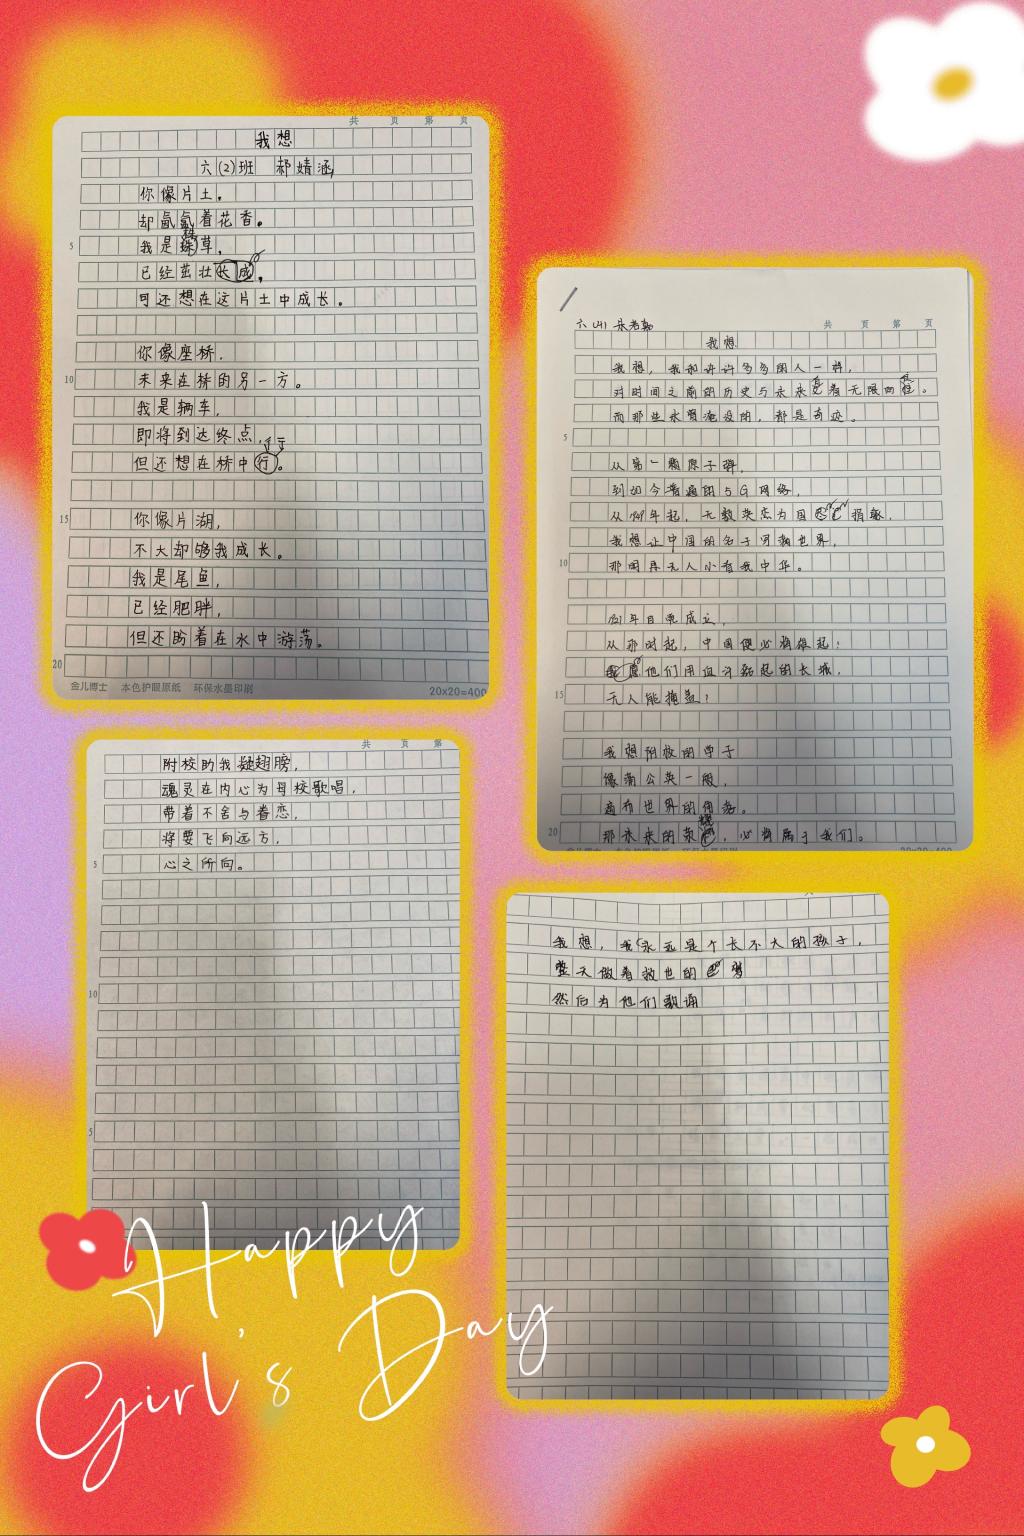 共 页 第 页
我想
六(2)班 郝婧涵
你像片土，
却氤氲着花香。
5
我是株草，
已经茁壮长成，
可还想在这片土中成长。
你像座桥，
10
未来在桥的另一方。
我是辆车，
即将到达终点，
但还想在桥中行。
15
你像片湖，
不大却够我成长。
我是尾鱼，
已经肥胖，
但还盼着在水中游荡。
20
金儿博士 本色护眼原纸 环保水墨印刷
20x20=400
附校助我 翅膀，
魂灵在内心为母校歌唱，
带着不舍与眷恋，
将要飞向远方，
5
心之所向。
10
共 页 第
共 页 第 页
我想
我想，我和许许多多的人一样，
对时间之前的历史与未来 着无限向往。
而那些水 淹没的，都是奇迹。
5
从第一颗原子弹，
到如今普通的5G网络，
从 年起，无数英杰为国 捐躯，
我想让中国的名字响 世界，
10
那间再无人小看我中华。
年自 成立，
从那时起，中国便必将雄起！
他们用血汗 起的长城，
15
无人能掩盖！
我想附校的学子
像蒲公英一般，
遍布世界的角落。
20
那未来的荣耀，必将属于我们。
我想，我永远是个长不大的孩子，
整天做着救世的 梦
然后为他们歌诵
Happy
Girl's Day